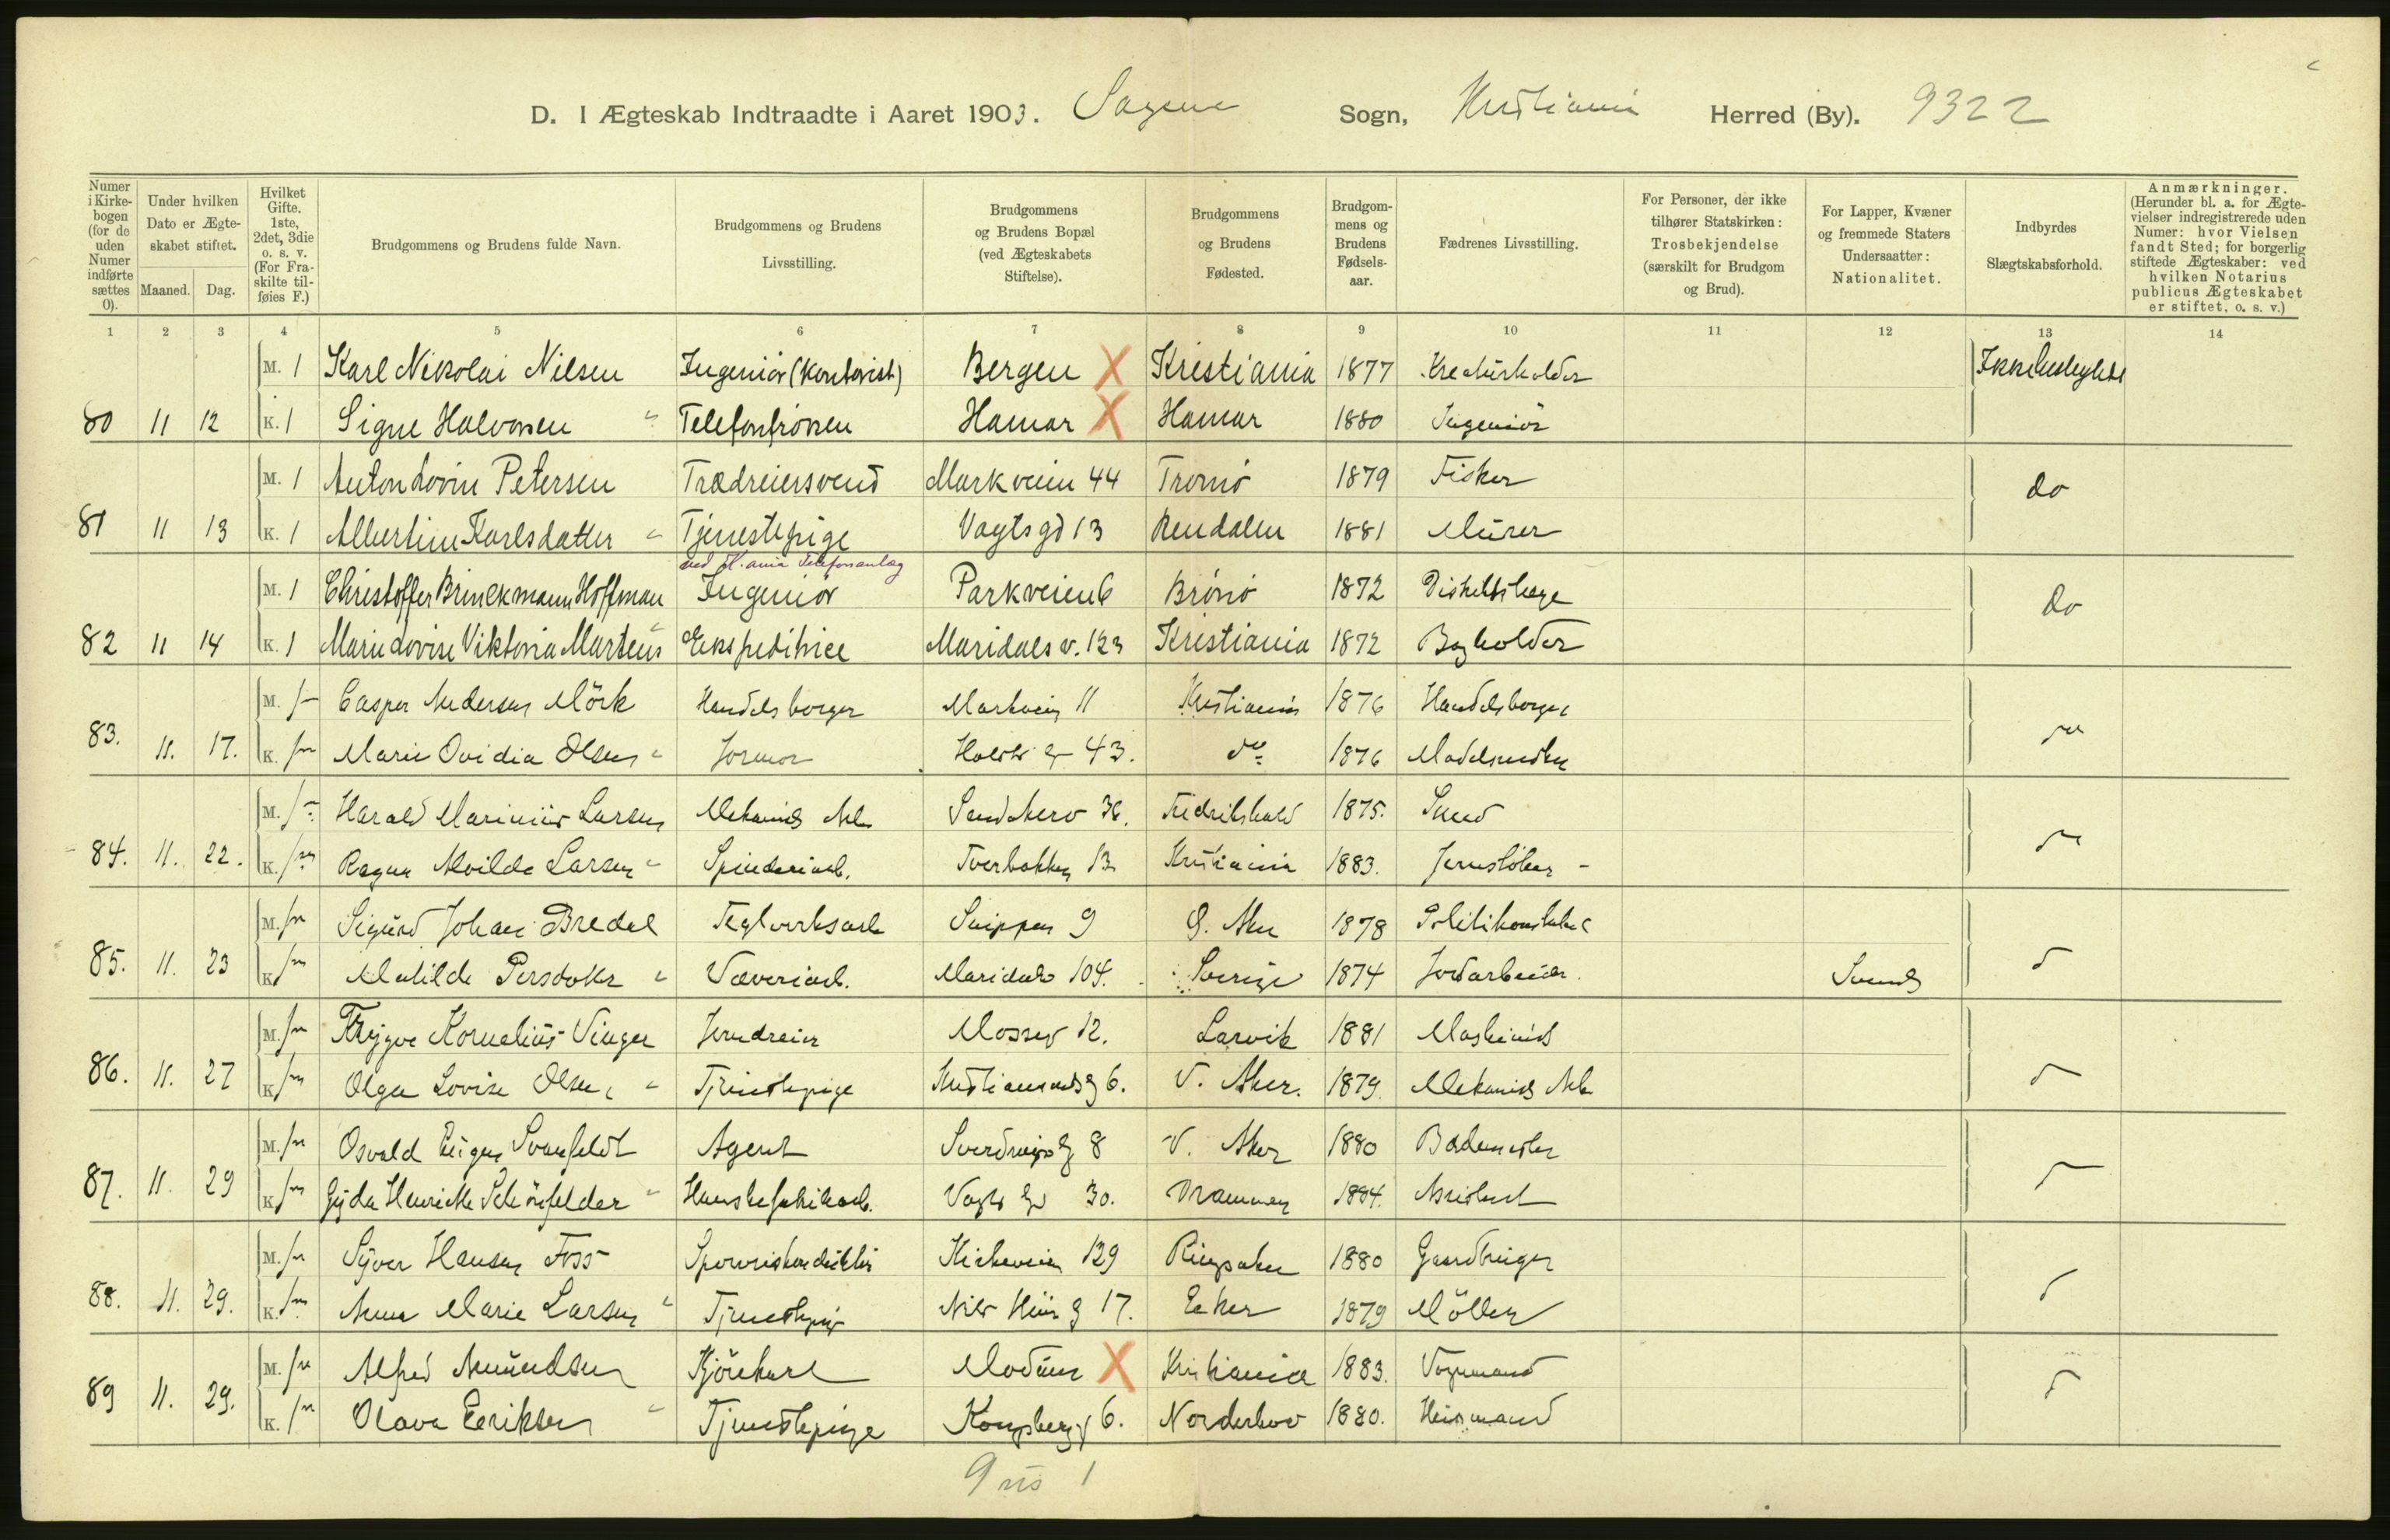 D. I Ægteskab Indtraadte i Aaret 1903. Sagene Sogn, Kristiania Herred (By). 9322
Numer i Kirkebogen (for de uden Numer indførte sættes 0).
Under hvilken Dato er Ægteskabet stiftet. Maaned. Dag.
Hvilket Gifte. 1ste, 2det, 3die o. s. v. (For Fraskilte tilføies F.)
Brudgommens og Brudens fulde Navn.
Brudgommens og Brudens Livsstilling.
Brudgommens og Brudens Bopæl (ved Ægteskabets Stiftelse).
Brudgommens og Brudens Fødested.
Brudgommens og Brudens Fødselsaar.
Fædrenes Livsstilling.
For Personer, der ikke tilhører Statskirken: Trosbekjendelse (særskilt for Brudgom og Brud).
For Lapper, Kvæner og fremmede Staters Undersaatter: Nationalitet.
Indbyrdes Slægtskabsforhold.
Anmærkninger. (Herunder bl. a. for Ægtevielser indregistrerede uden Numer: hvor Vielsen fandt Sted; for borgerlig stiftede Ægteskaber: ved hvilken Notarius publicus Ægteskabet er stiftet, o. s. v.)
1 2 3 4 5 6 7 8 9 10 11 12 13 14
M. 1 Karl Nikolai Nilsen Ingeniör (Kontorist) Bergen X Kristiania 1877 Kreaturholder
80 11 12 K. 1 Signe Halvorsen Telefonfröken Hamar X Hamar 1880 Ingeniör
M. 1 Anton Lovin Petersen Trædreiersvend Markveien 44 Tromsö 1879 Fisker do
81 11 13 K. 1 Albertine Karlsdatter Tjenestepige Vogtsgd 13 Rendalen 1881 Murer
ved Kr.ania Telefonanlæg
M. 1 Christoffer Brinckmann Hoffman Ingeniör Parkveien 6 Brönö 1872 Distriktslæge do
82 11 14 K. 1 Marie Lovise Viktoria Martens Ekspeditrice Maridals v. 123 Kristiania 1872 Bogholder
M. Casper Andersen Mörk Handelsborger Markveien 11 Kristiania 1876 Handelsborger
83. 11. 17. K. Marie Ovidia Olsen Jormor Holsts g 43. do 1876 Modelsnedker
M. Harald Marinius Larsen Mekanisk Arb Sandakerv 36. Fredrikshald 1875. Smed
84. 11. 22. K. Ragna Alvilde Larsen Spinderiarb. Tverbakken 13 Kristiania 1883. Jernstöber
M. Sigurd Johan Bredel Teglverksarb Snippen 9 Ö. Aker 1878 Politikonstabel
85. 11. 23 K. Matilde Persdotter Væveriarb. Maridalsv 104. Sverige 1874 Jordarbeider. Svensk
M. Trygve Kornelius Vinger Jerndreier Mossev 12. Larvik 1881 Maskinist
86. 11. 27 K. Olga Lovise Olsen Tjenestepige Kristiansundsg 6. V. Aker. 1879. Mekanisk Arb.
M. Osvald Eugen Svanfeldt Agent Sverdrups g 8 V. Aker 1880 Bademester
87. 11. 29 K. Gyda Henriette Schönfelder Hanskefabrikarb. Vogts gd 30. Drammen 1884. Assistent
M. Syver Hansen Foss Sporveiskonduktör Kirkeveien 129 Ringsaker 1880 Gaardbruger
88. 11. 29. K. Anna Marie Larsen Tjenestepige Nils Huus g 17. Eker 1879 Möller
M. Alfred Amundsen Kjörekarl Modum X Kristiania 1883. Vognmand
89 11. 29. K. Olava Eriksen Tjenestepige Kongsberg g 6. Norderhov 1880. Heismand